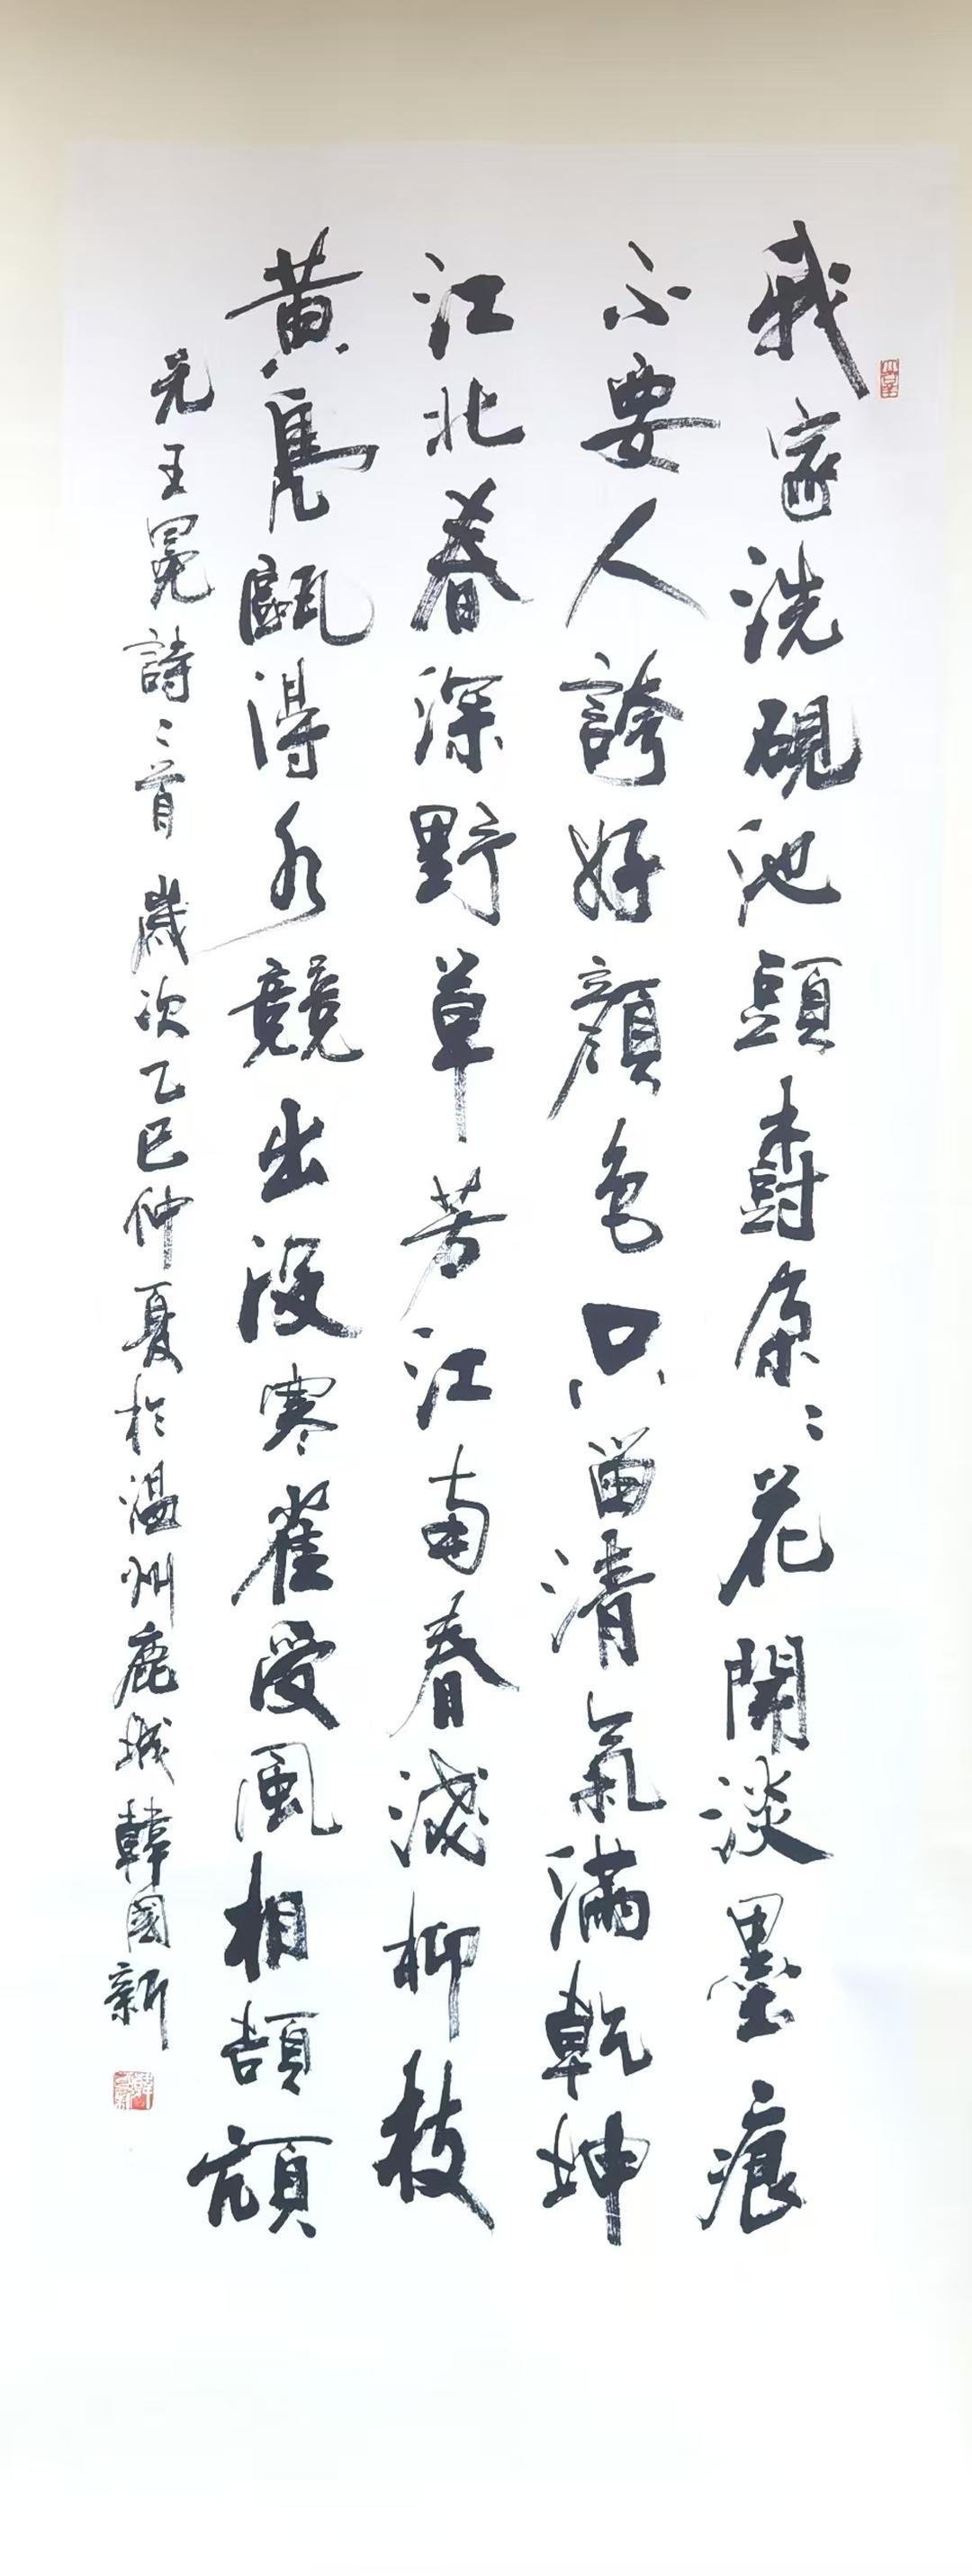 我家洗硯池頭樹朵〻花開淡墨痕
不要人誇好顏色只留清氣滿乾坤
江北春深野草芳江南春淺柳枝
黃鳧甌得水競出沒寒雀受風相頡頏
元王冕詩二首歲次乙巳仲夏於溫州鹿城韓國新